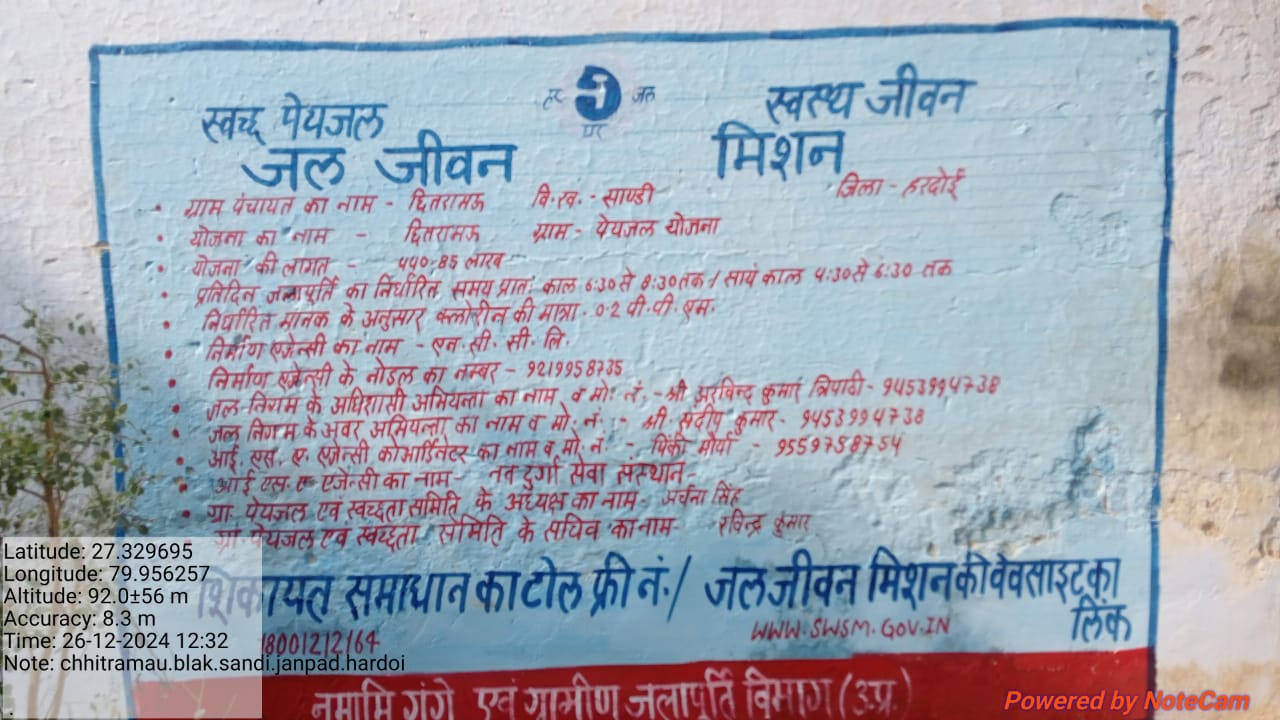 हर जल
घर
स्वच्छ पेयजल स्वस्थ जीवन
जल जीवन मिशन
जिला - हरदोई
• ग्राम पंचायत का नाम - छितरामऊ वि.ख. - साण्डी
• योजना का नाम - छितरामऊ ग्राम - पेयजल योजना
• योजना की लागत - ५५०.85 लाख
• प्रतिदिन जलापूर्ति का निर्धारित समय प्रातः काल 6:30 से 8:30 तक / सायं काल 4:30 से 6:30 तक
• निर्धारित मानक के अनुसार क्लोरीन की मात्रा - 0.2 पी.पी. एम.
• निर्माण एजेन्सी का नाम - एन. सी. सी. लि.
• निर्माण एजेन्सी के नोडल का नम्बर - 9219958735
• जल निगम के अधिशासी अभियन्ता का नाम व मो. नं. - श्री अरविन्द कुमार त्रिपाठी - 9453994738
• जल निगम के अवर अभियन्ता का नाम व मो. नं. - श्री. संदीप कुमार - 9453994738
• आई. एस. ए. एजेन्सी कोआर्डिनेटर का नाम व मो. नं. - पिंकी मौर्या - 9559758754
• आई एस ए एजेन्सी का नाम - नव दुर्गा सेवा संस्थान -
• ग्रा. पेयजल एवं स्वच्छता समिति के अध्यक्ष का नाम - अर्चना सिंह
• ग्रा. पेयजल एवं स्वच्छता समिति के सचिव का नाम - रविन्द्र कुमार
शिकायत समाधान का टोल फ्री नं. / जल जीवन मिशन की वेबसाइट का लिंक
18001212164 WWW.SWSM.GOV.IN
नमामि गंगे एवं ग्रामीण जलापूर्ति विभाग (उ.प्र.)
Latitude: 27.329695
Longitude: 79.956257
Altitude: 92.0±56 m
Accuracy: 8.3 m
Time: 26-12-2024 12:32
Note: chhitramau.blak.sandi.janpad.hardoi
Powered by NoteCam